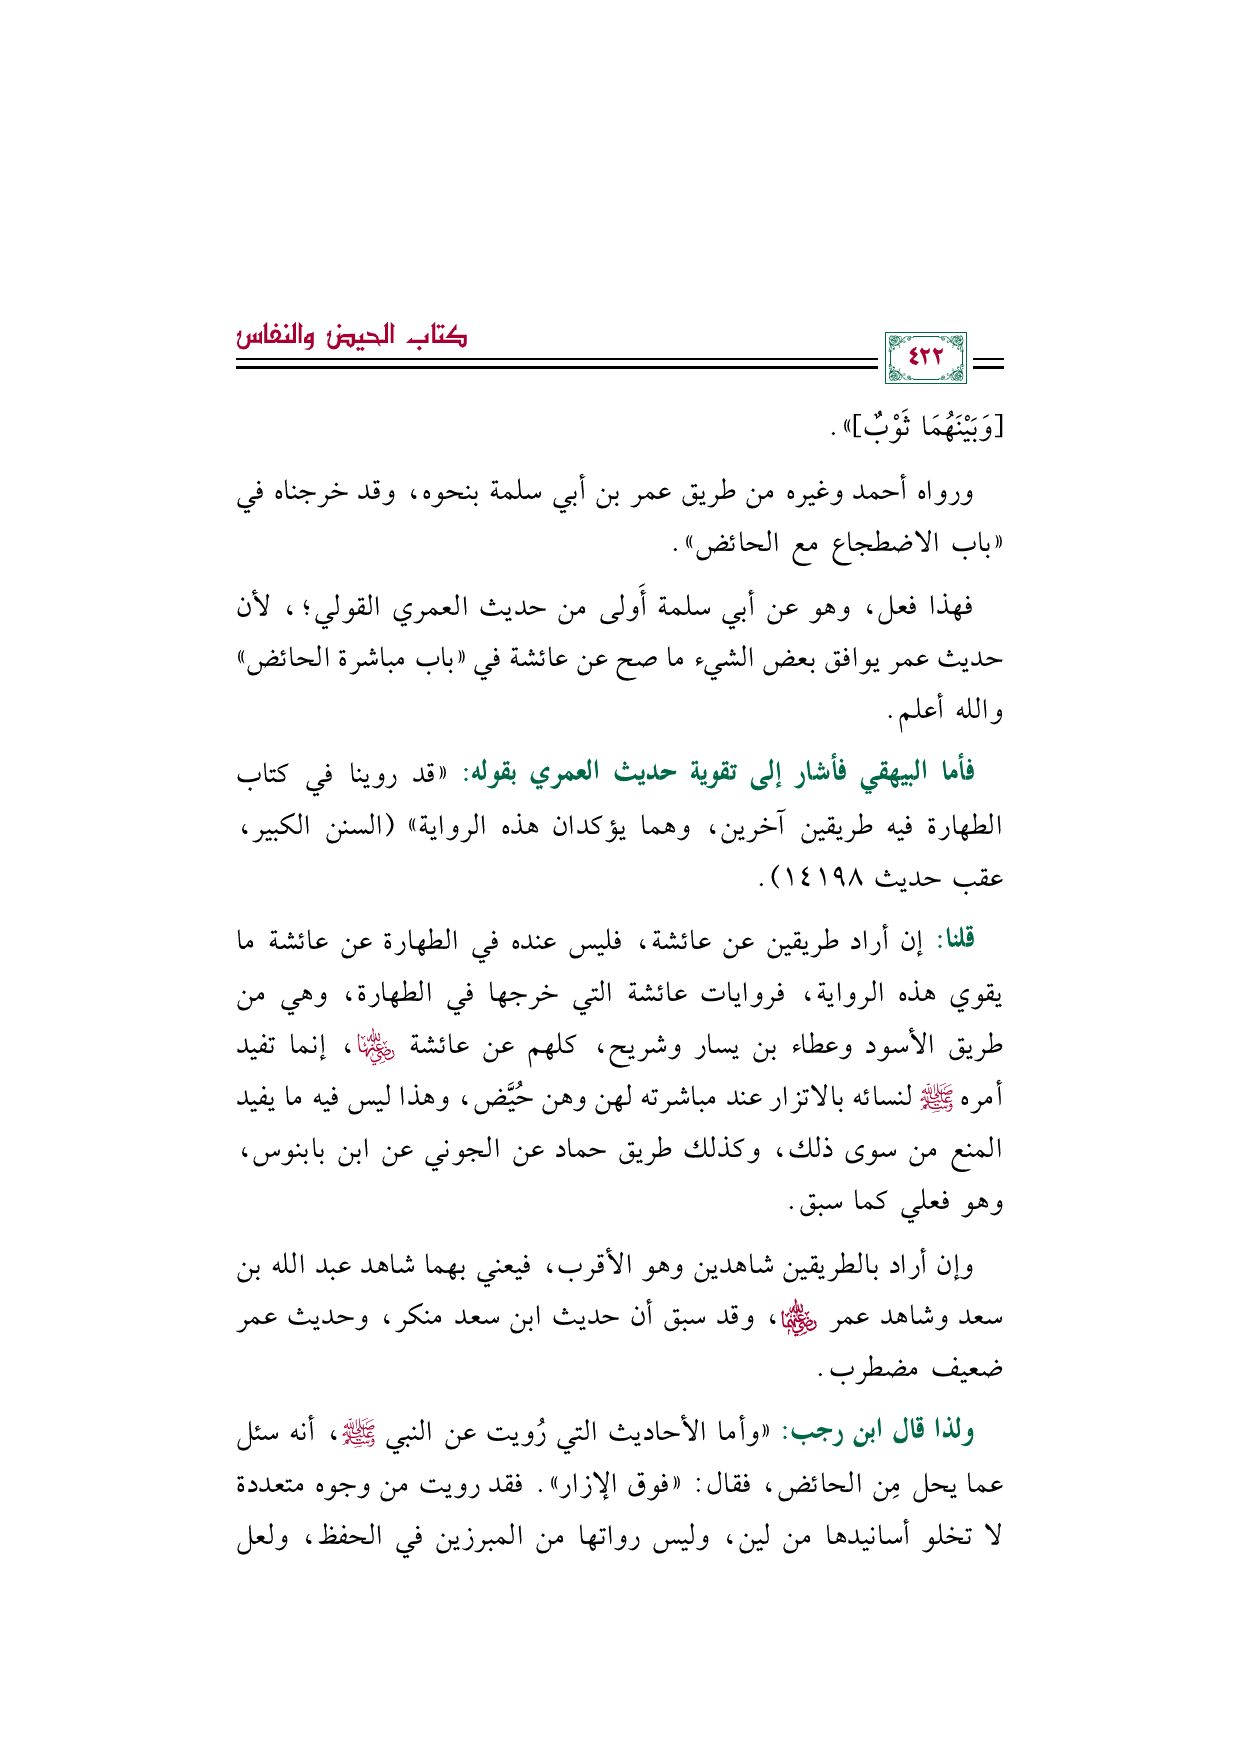 كتاب الحيض والنفاس
٤٢٢
[وَبَيْنَهُمَا ثَوْبٌ]».
ورواه أحمد وغيره من طريق عمر بن أبي سلمة بنحوه، وقد خرجناه في
«باب الاضطجاع مع الحائض».
فهذا فعل، وهو عن أبي سلمة أَولى من حديث العمري القولي؛، لأن
حديث عمر يوافق بعض الشيء ما صح عن عائشة في «باب مباشرة الحائض»
والله أعلم.
فأما البيهقي فأشار إلى تقوية حديث العمري بقوله: «قد روينا في كتاب
الطهارة فيه طريقين آخرين، وهما يؤكدان هذه الرواية» (السنن الكبير،
عقب حديث ١٤١٩٨).
قلنا: إن أراد طريقين عن عائشة، فليس عنده في الطهارة عن عائشة ما
يقوي هذه الرواية، فروايات عائشة التي خرجها في الطهارة، وهي من
طريق الأسود وعطاء بن يسار وشريح، كلهم عن عائشة رضي الله عنها، إنما تفيد
أمره ﷺ لنسائه بالاتزار عند مباشرته لهن وهن حُيَّض، وهذا ليس فيه ما يفيد
المنع من سوى ذلك، وكذلك طريق حماد عن الجوني عن ابن بابنوس،
وهو فعلي كما سبق.
وإن أراد بالطريقين شاهدين وهو الأقرب، فيعني بهما شاهد عبد الله بن
سعد وشاهد عمر رضي الله عنهما، وقد سبق أن حديث ابن سعد منكر، وحديث عمر
ضعيف مضطرب.
ولذا قال ابن رجب: «وأما الأحاديث التي رُويت عن النبي ﷺ، أنه سئل
عما يحل مِن الحائض، فقال: «فوق الإزار». فقد رويت من وجوه متعددة
لا تخلو أسانيدها من لين، وليس رواتها من المبرزين في الحفظ، ولعل